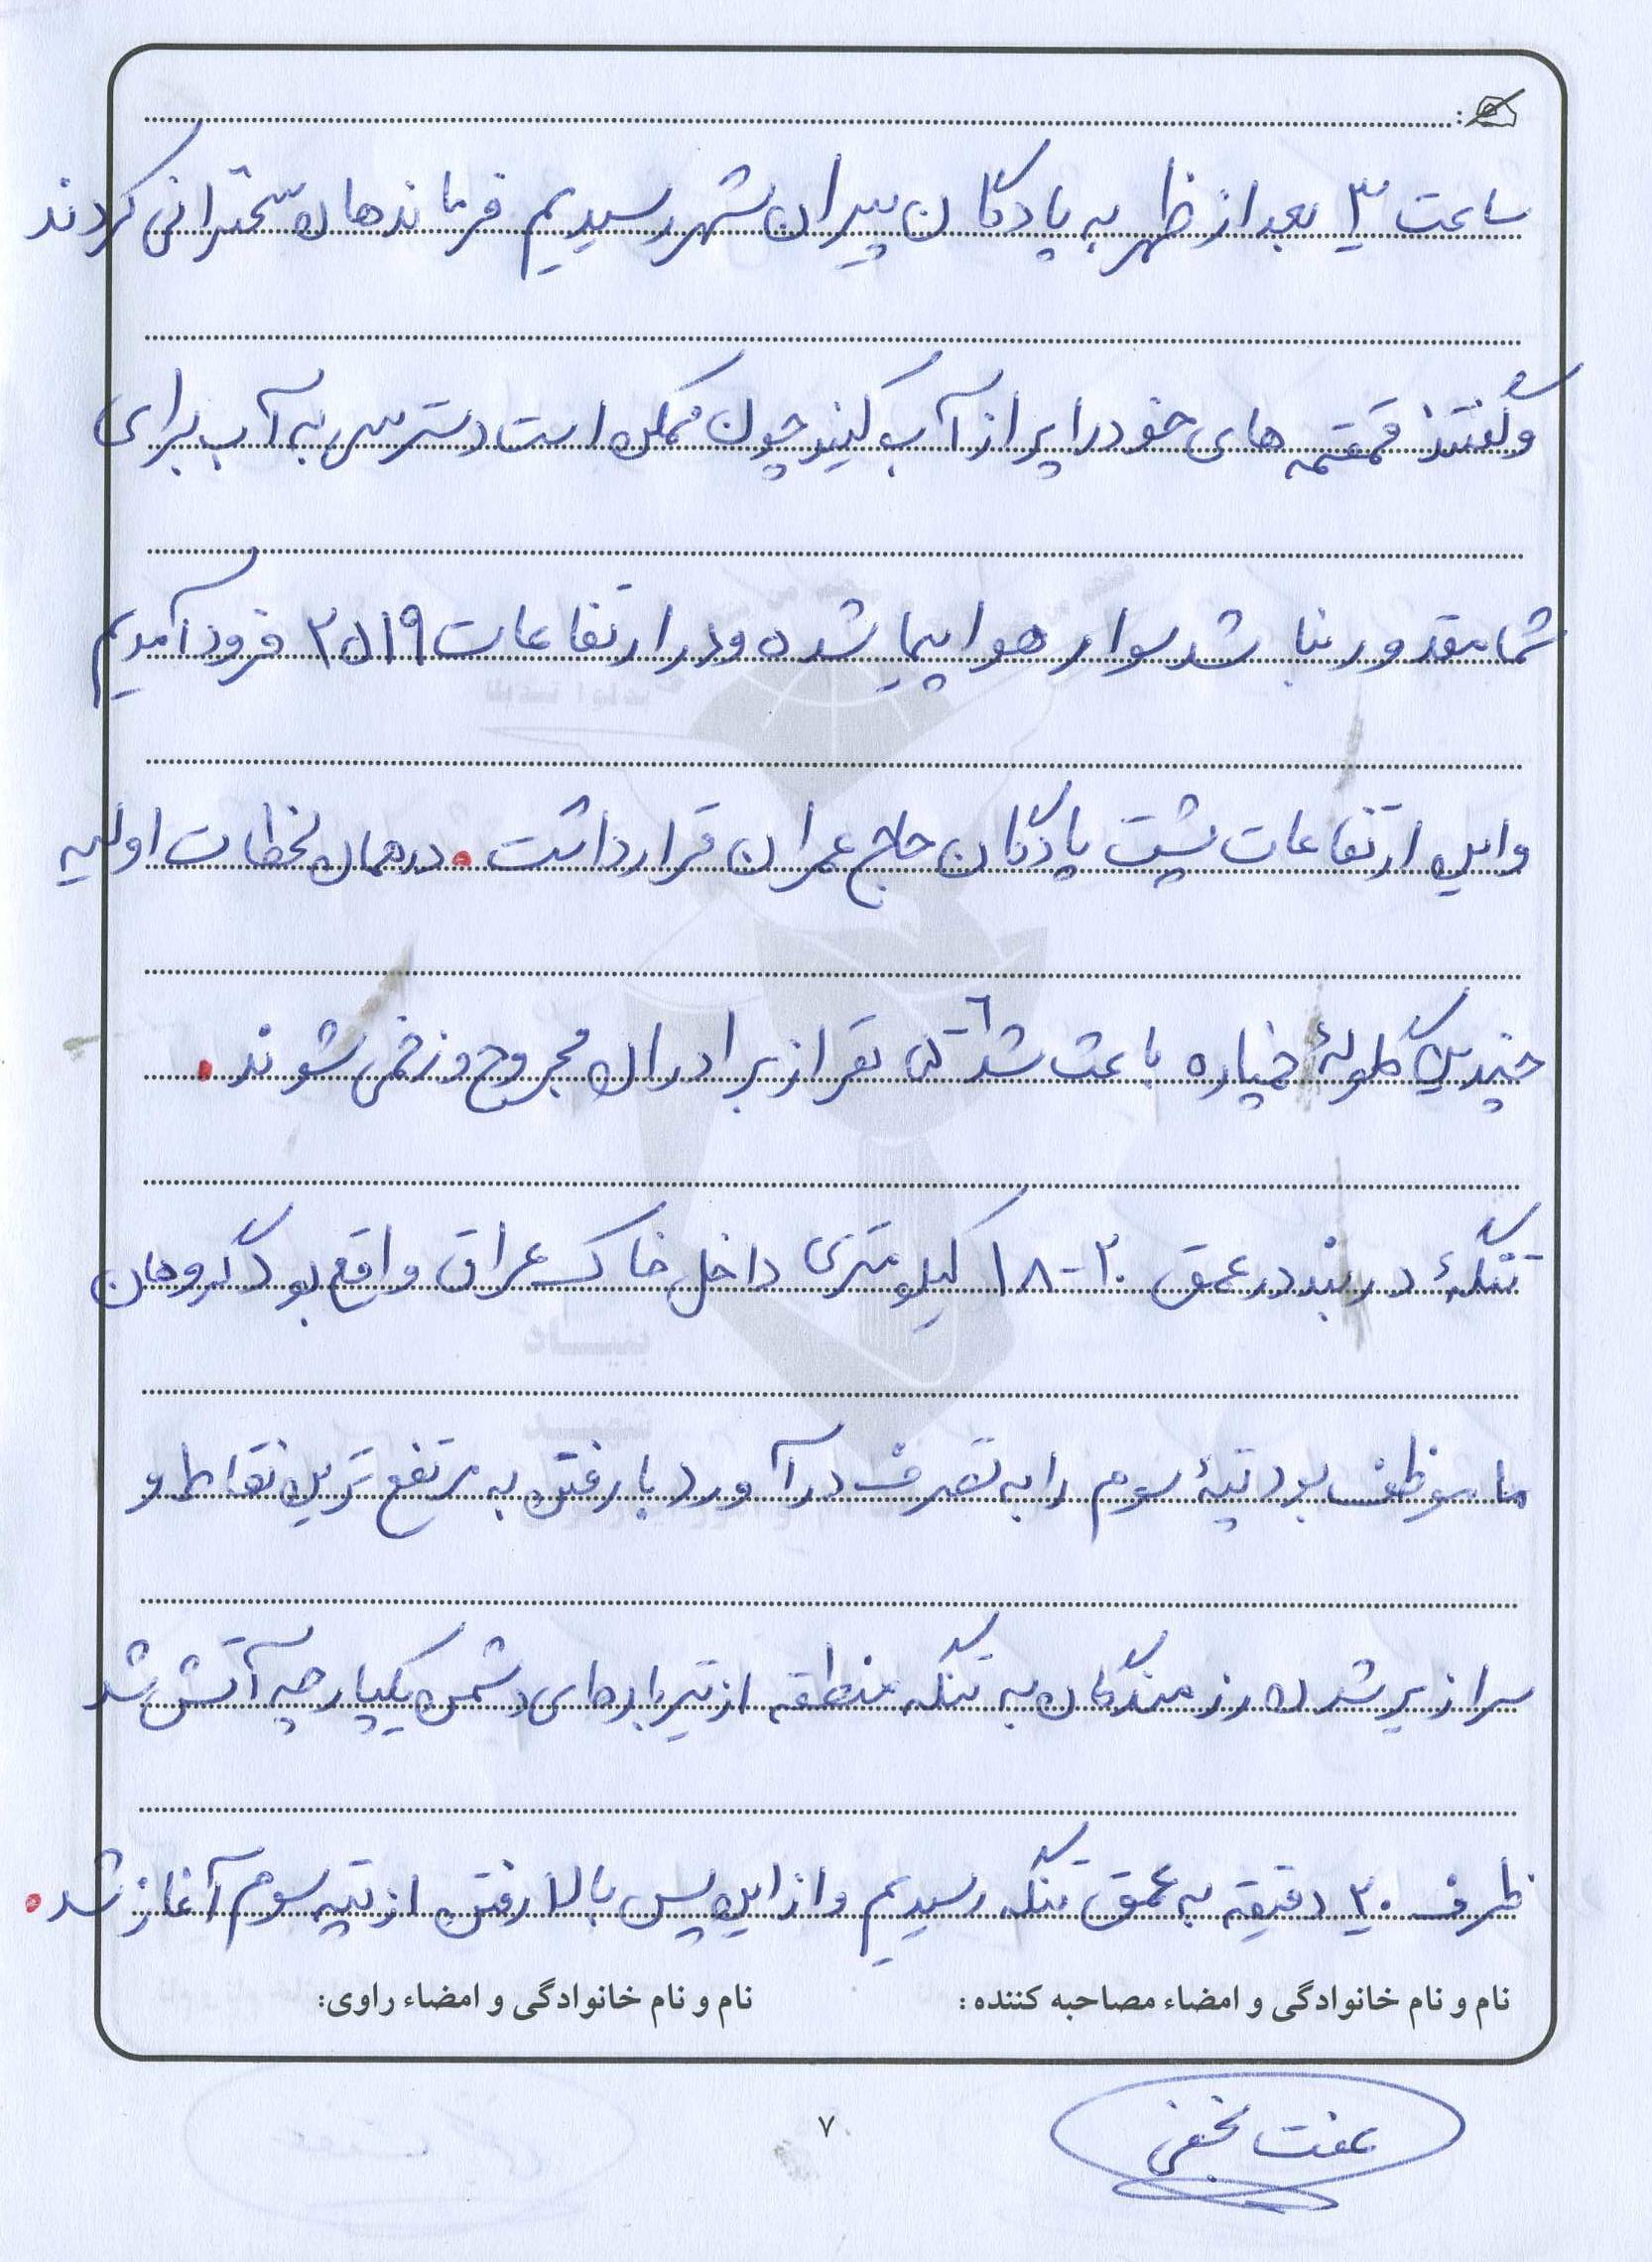 ساعت ۳ بعد از ظهر به پادگان پیران شهر رسیدیم فرماندهان سخنرانی کردند
و گفتند قمقمه های خود را پر از آب کنید چون ممکن است دسترسی به آب برای
شما مقدور نباشد سوار هواپیما شده و در ارتفاعات ۲۵۱۹ فرود آمدیم
و این ارتفاعات پشت پادگان حاج عمران قرار داشت. در همان لحظات اولیه
چندین گلولهٔ خمپاره باعث شد ۶- نفر از برادران مجروح و زخمی شوند.
تنگهٔ دربند در عمق ۲۰-۱۸ کیلومتری داخل خاک عراق واقع بود گروهان
ما موظف بود تپهٔ سوم را به تصرف درآورد با رفتن به مرتفع ترین نقاط و
سرازیر شدن رزمندگان به تنگه منطقه از تیربارهای دشمن یکپارچه آتش شد
ظرف ۳۰ دقیقه به عمق تنگه رسیدیم و از این پس بالا رفتن از تپه سوم آغاز شد.
نام و نام خانوادگی و امضاء مصاحبه کننده: نام و نام خانوادگی و امضاء راوی:
عفت نجفی
۷